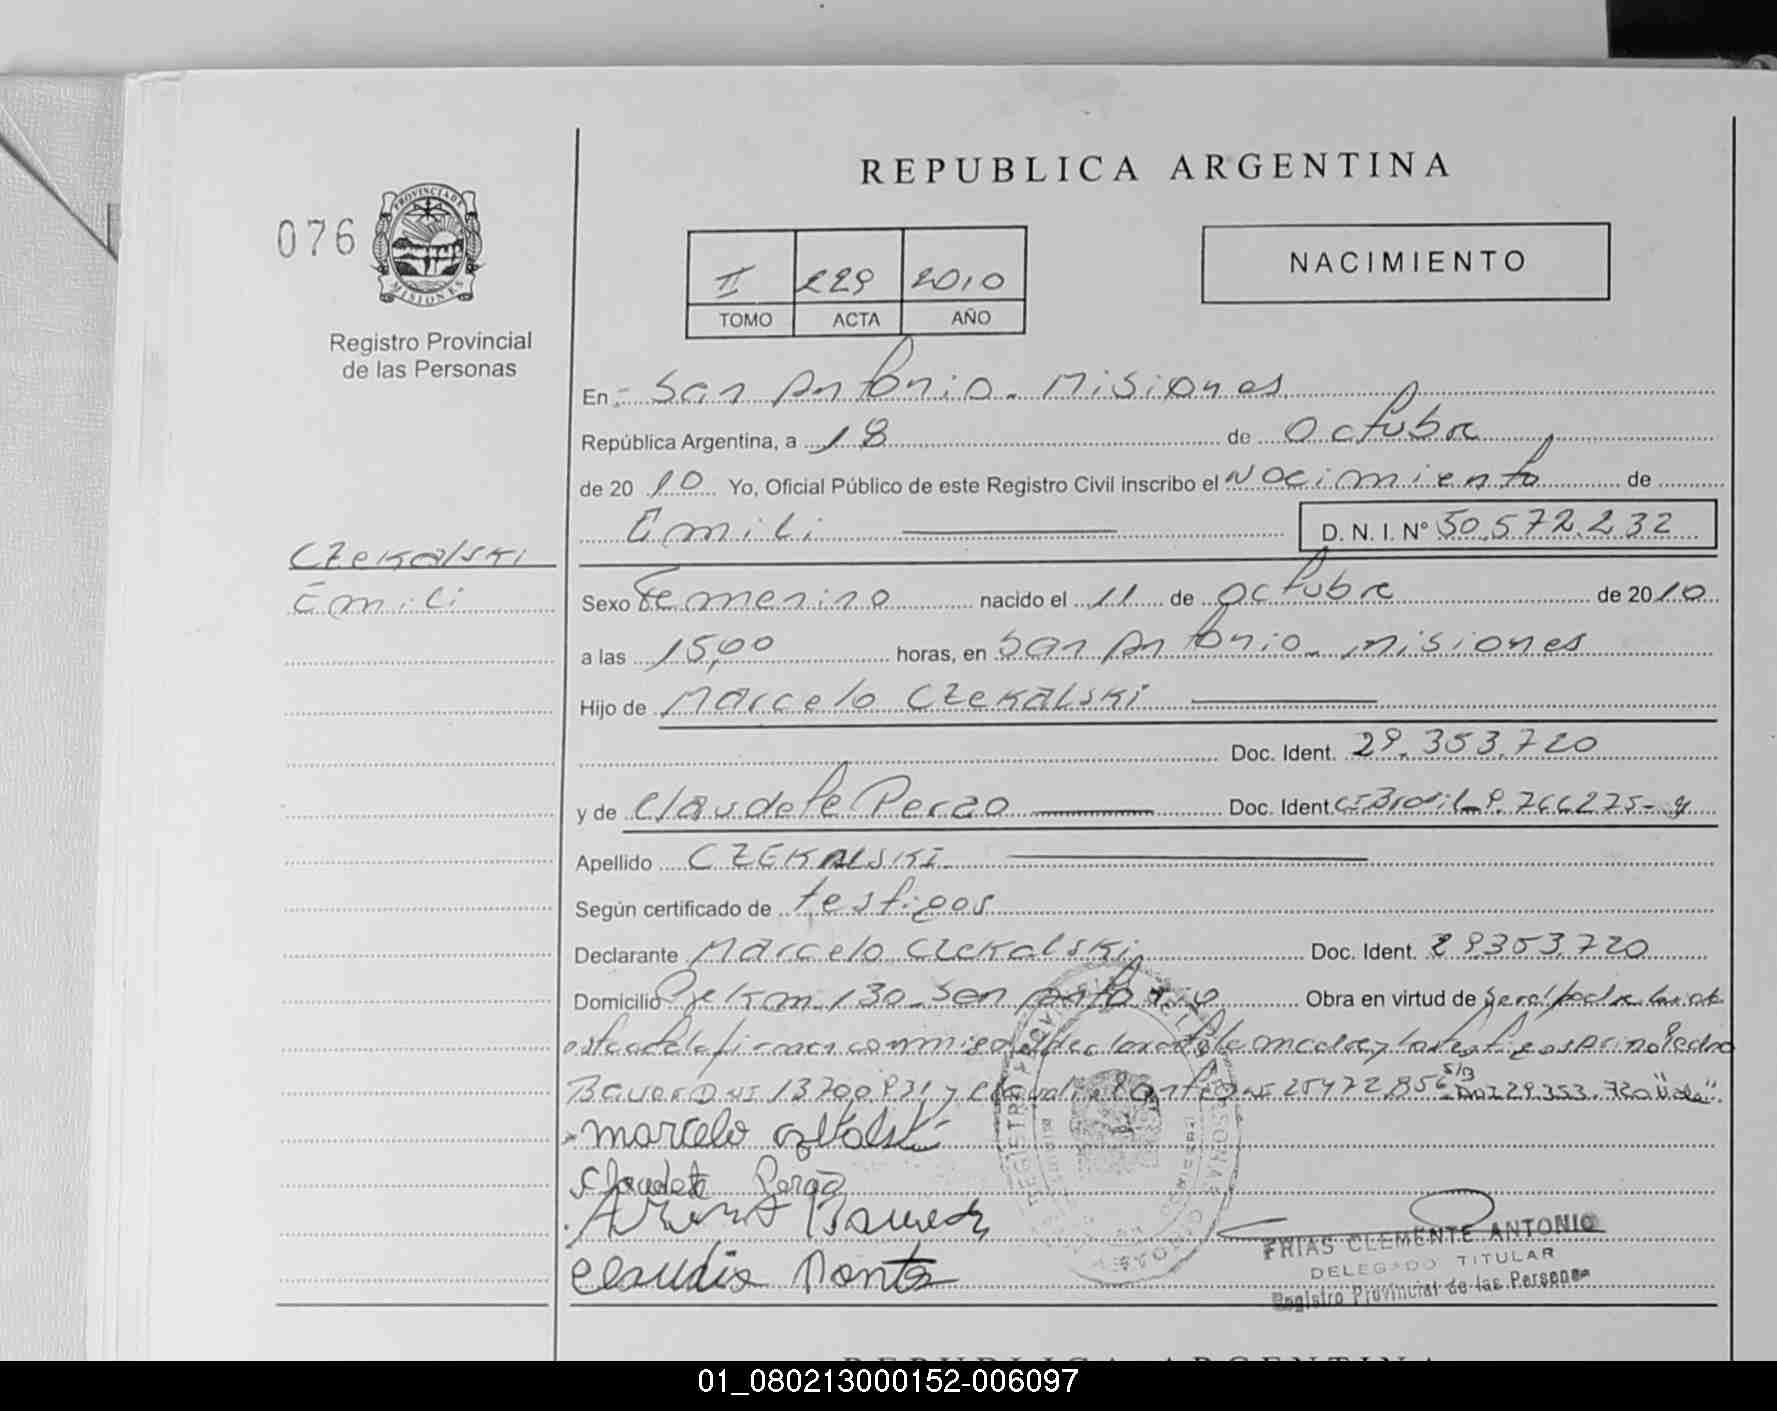 REPUBLICA ARGENTINA
076
PROVINCIA DE
MISIONES
Registro Provincial
de las Personas
II 229 2010
TOMO ACTA AÑO
NACIMIENTO
En San Antonio - Misiones
República Argentina, a 18 de Octubre
de 20 10 Yo, Oficial Público de este Registro Civil inscribo el Nacimiento de
Emili D. N. I. Nº 50.572.232
Czekalski
Emili
Sexo Femenino nacido el 11 de octubre de 20 10
a las 15,00 horas, en San Antonio - Misiones
Hijo de Marcelo Czekalski
Doc. Ident. 29.353.720
y de Claudete Perao Doc. Ident. CI Brasil - 9.766275-
Apellido CZEKALSKI
Según certificado de testigos
Declarante Marcelo Czekalski Doc. Ident. 29353.720
Domicilio Pje Km 130 San Antonio Obra en virtud de Ser el padre
firman conmigo el declarante la madre y los testigos Pedro
Bauer DNI 13700,931 y DNI 25472,856 S/B DNI 29.353.720 "Vale".
Marcelo Czekalski
Claudete Perao
Claudia
REGISTRO PROVINCIAL DE LAS PERSONAS
FRIAS CLEMENTE ANTONIO
DELEGADO TITULAR
Registro Provincial de las Personas
REPUBLICA ARGENTINA
01_080213000152-006097